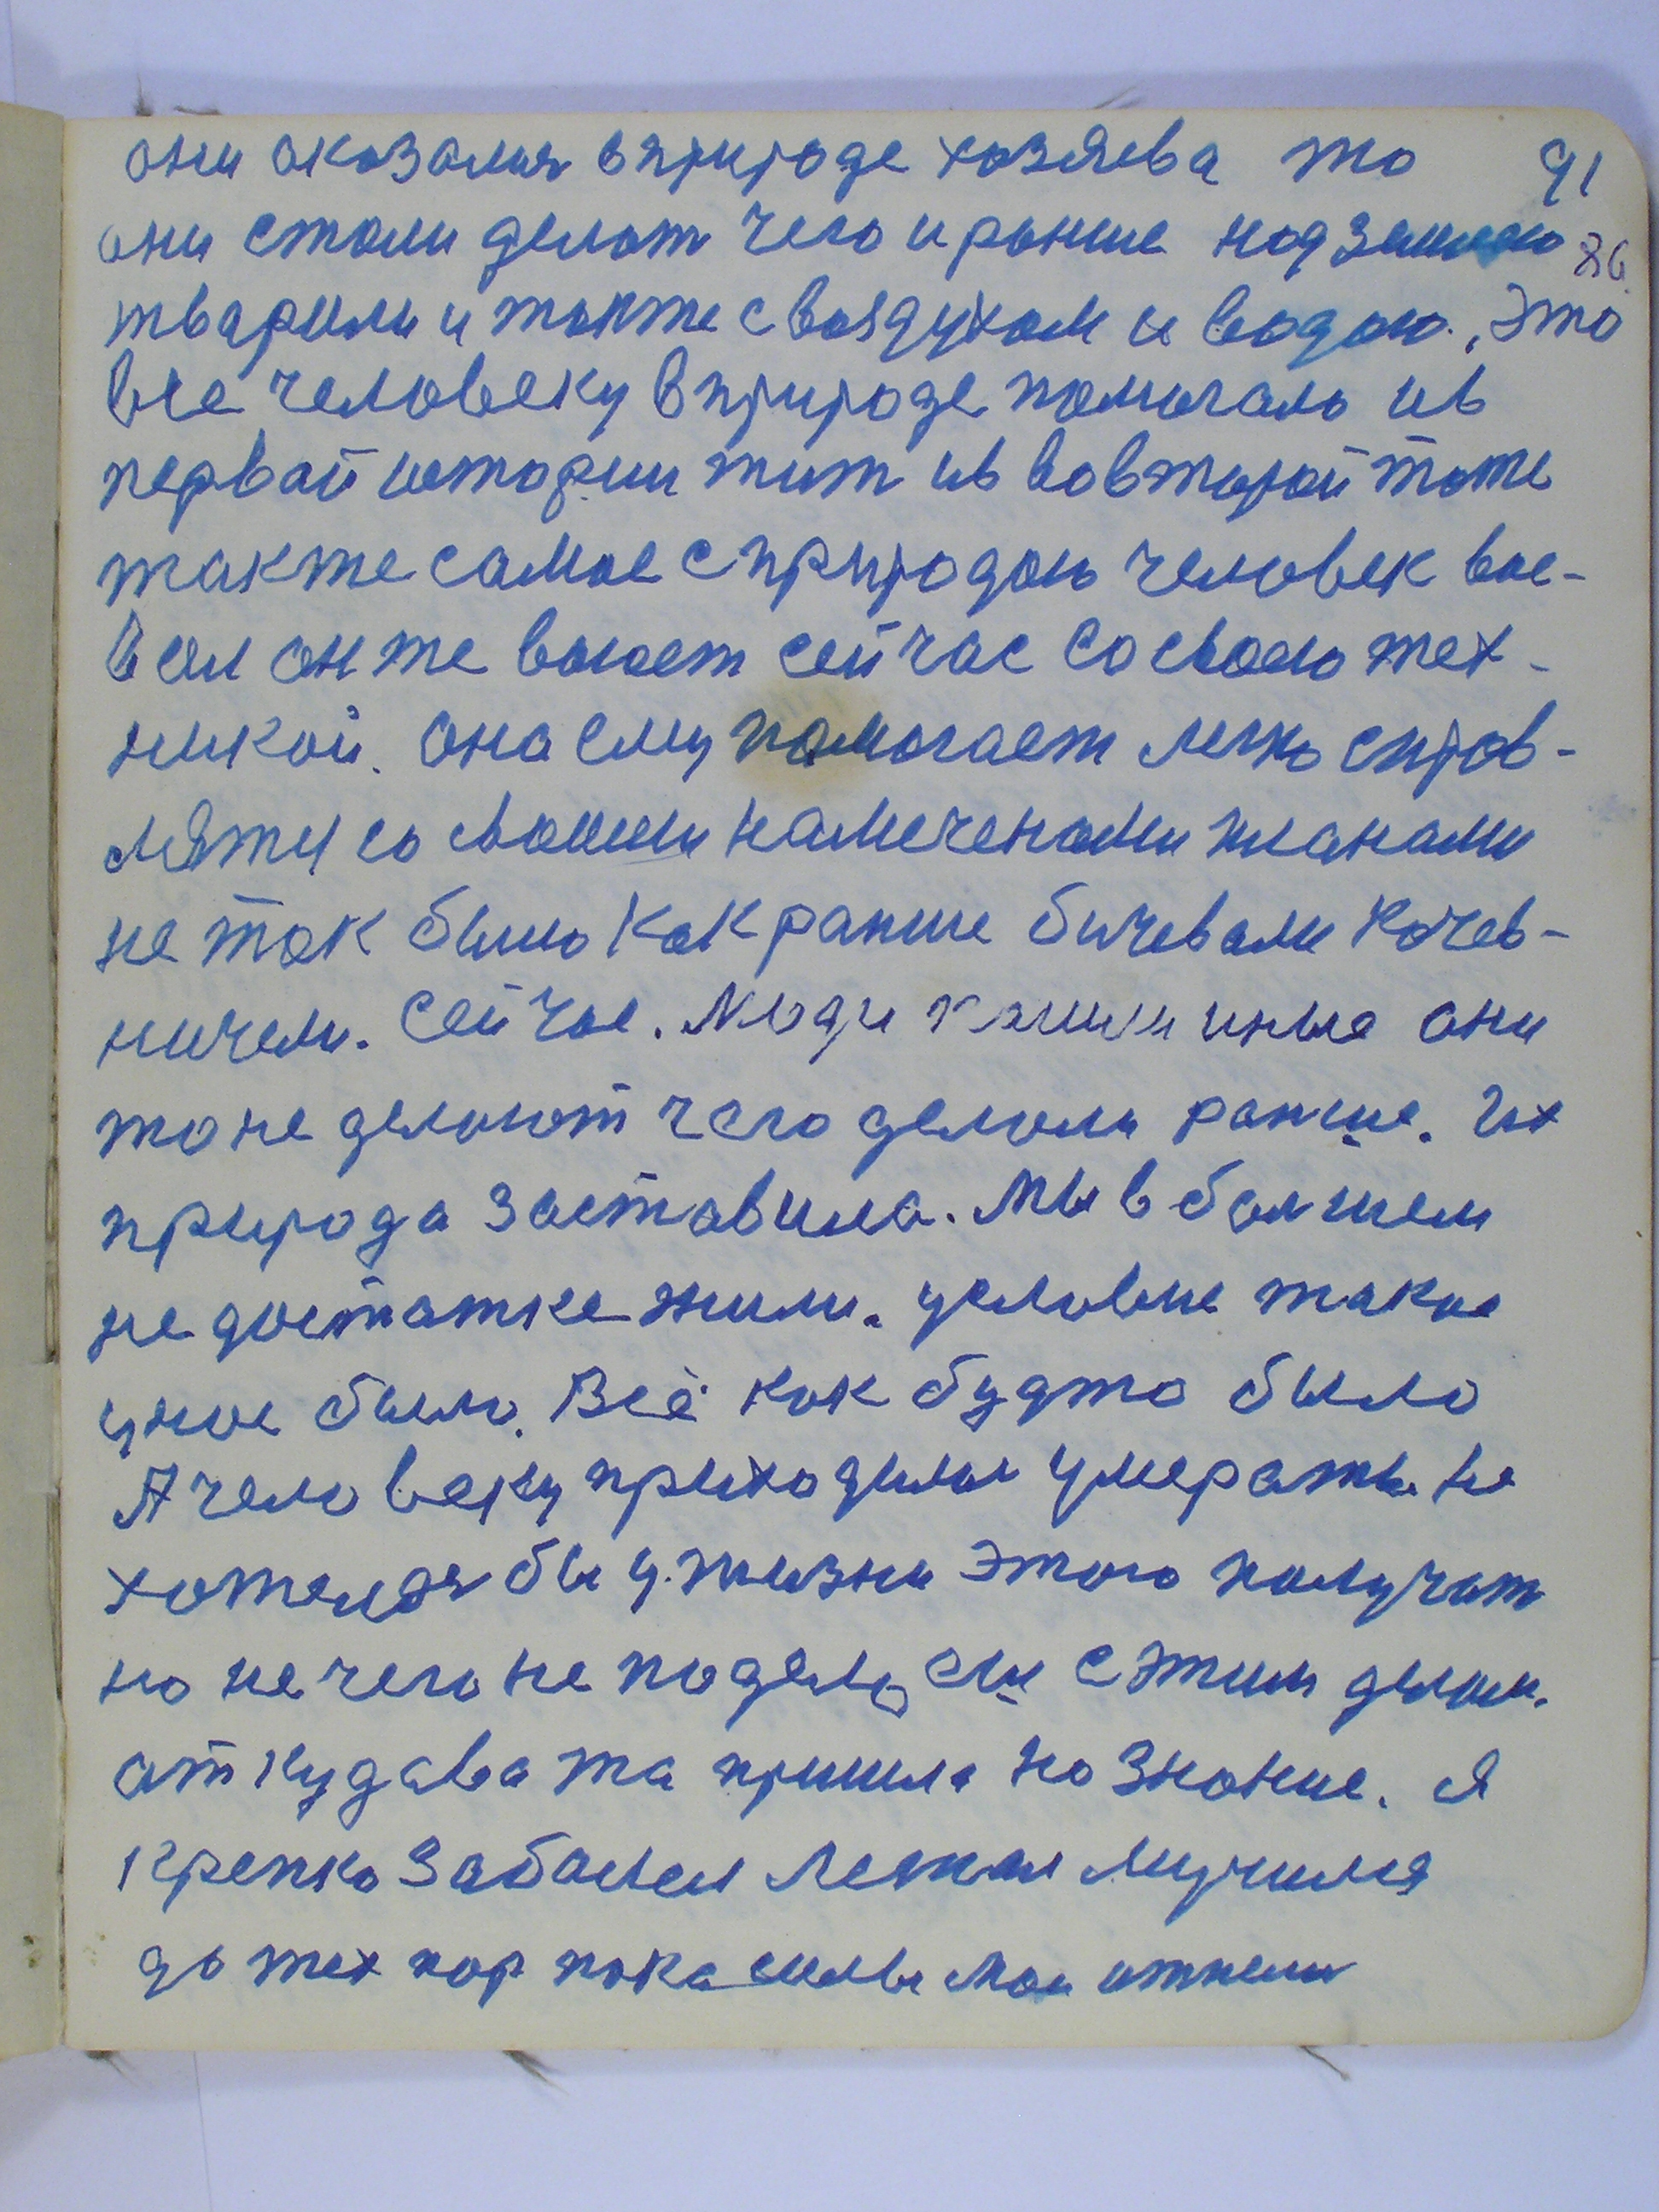 они оказалия вприроде хозяева то 91
они стали делат чего и ранше над землею 86
тварили и также с воздухом и водою. Это
все человеку вприроде помогало ив
первай истории жит ив вовторой тоже
также самое с природою человек вое-
вал он же воюет сейчас со своею тех-
никой. Она ему помогает легко справ-
лятся со своими намеченами планами
не так было как ранше бичевали кочев-
ничем. Сейчас. Люди пошли иные они
то не делают чего делали ранше. Их
природа заставила. Мы в болшем
не достатке жили. условие такие
у нас было. Всё как будто было
А человеку приходилос умерать. не
хотелося бы у жизни этого получат
но не чего не поделаеш с этим делом.
аткудава та пришла но знание. я
крепко заболел лежал мучился
до тех пор пока силы мои